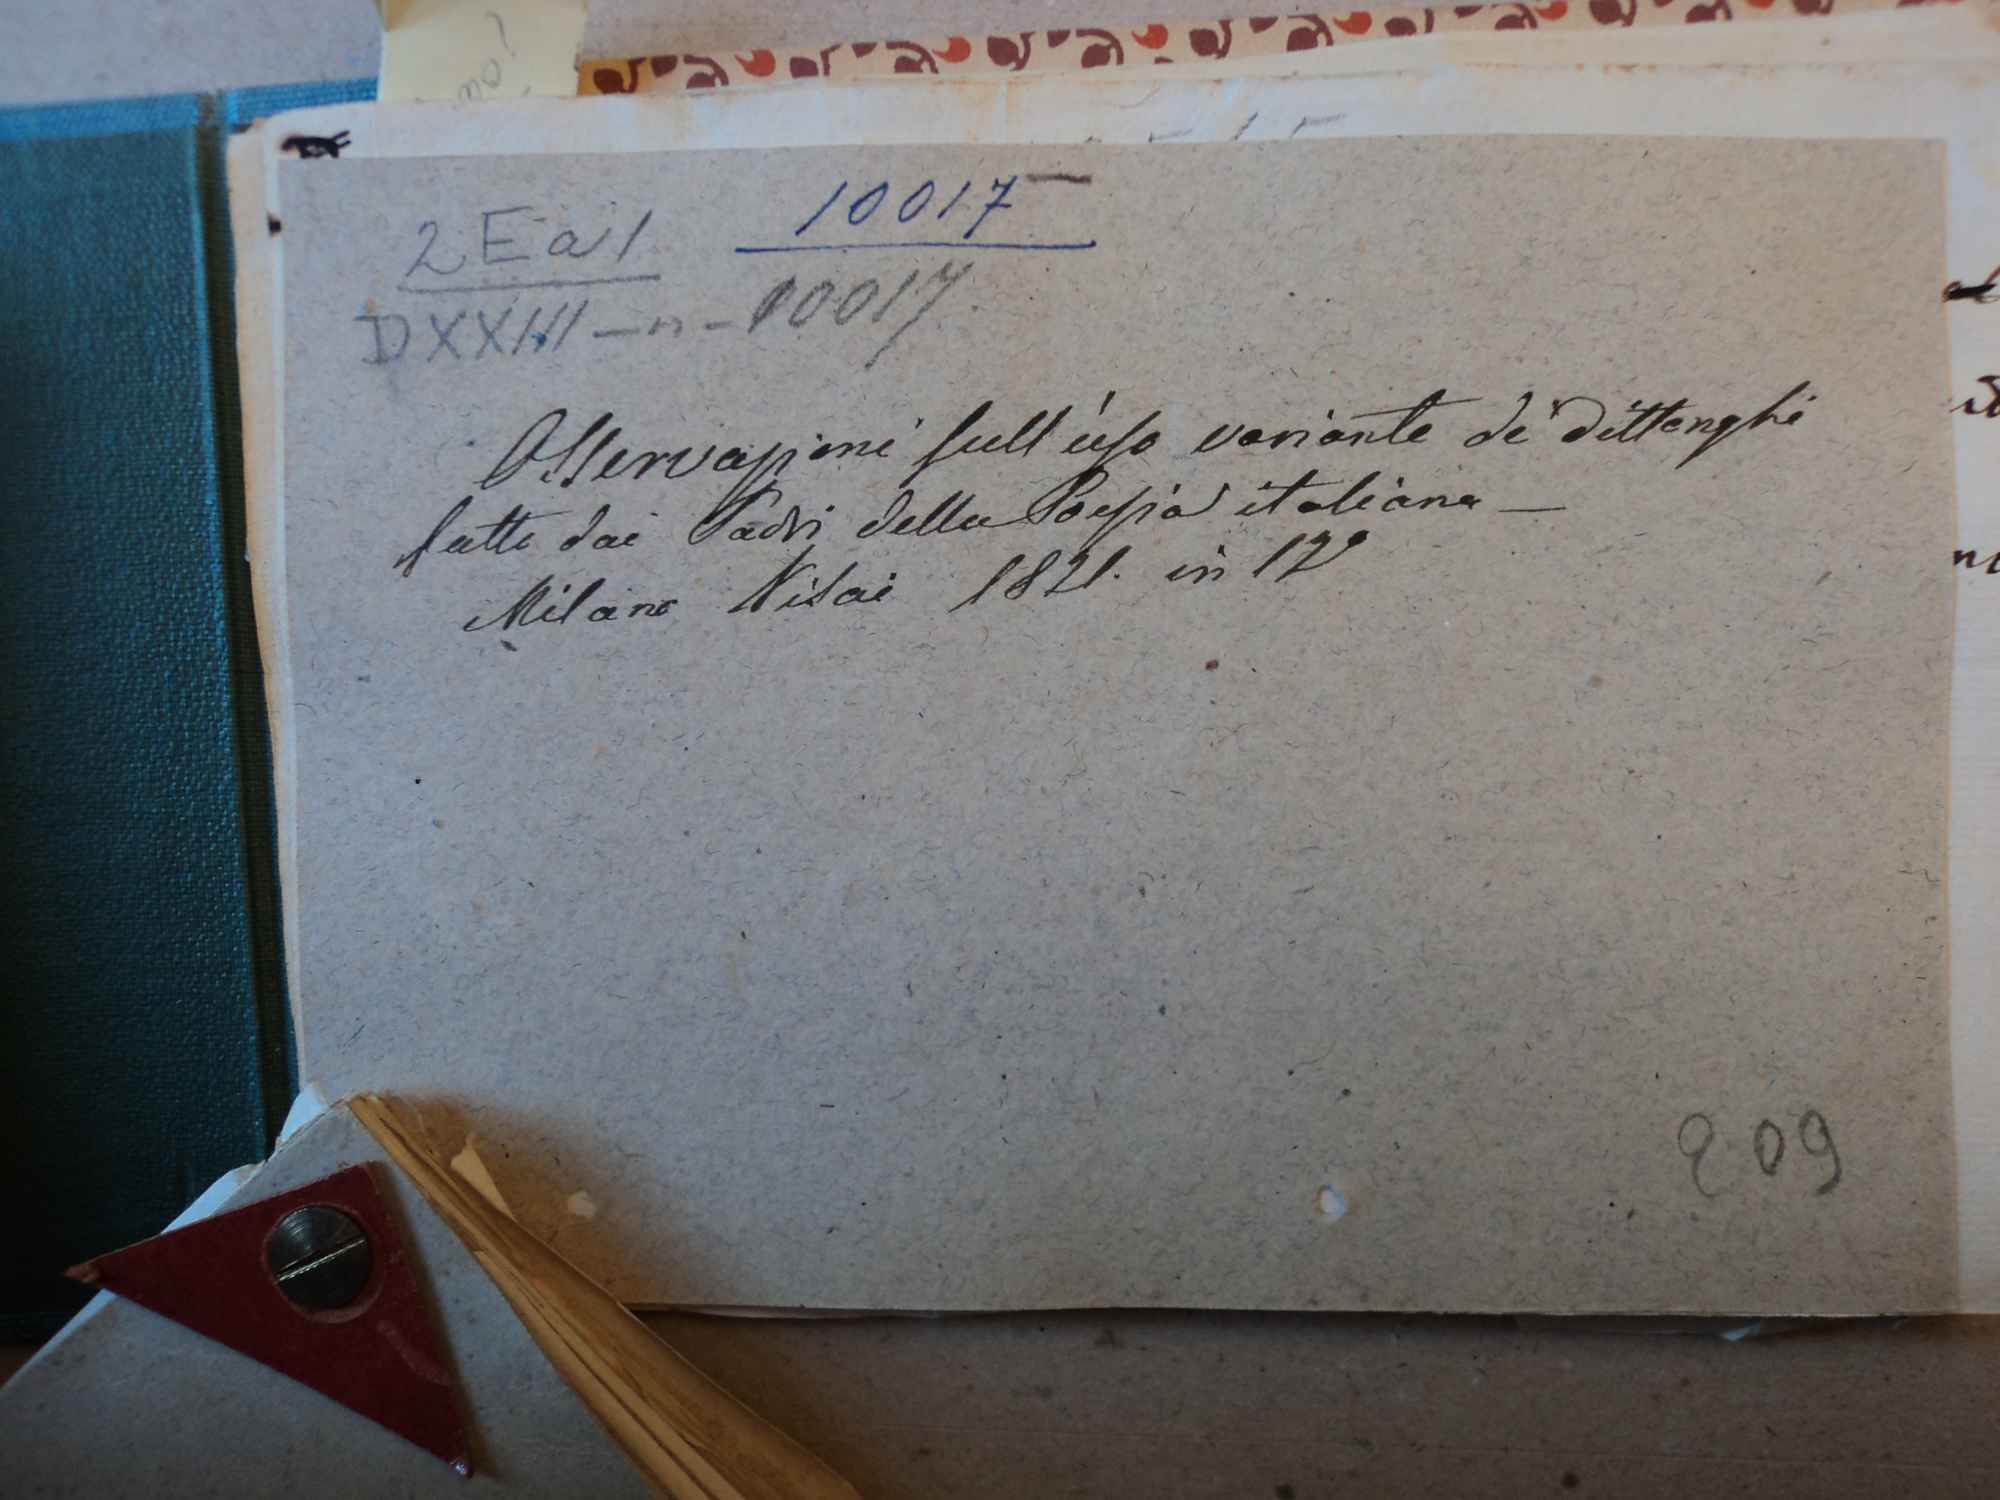 2 E a 1 10017
DXXIII - n - 10017
Osservazioni sull'uso variante de' dittonghi
fatte dai Padri della Poesia italiana —
Milano Visai 1821. in 12°
209